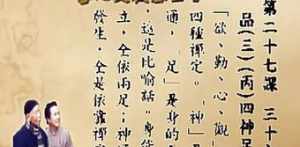 第二十七課　三十
品(三)(丙)四神足
「欲、勤、心、觀
四種禪定。「神」是
通，「足」是身的
這是比喻話。身
立，全依兩足；神
發生，全是依靠禪